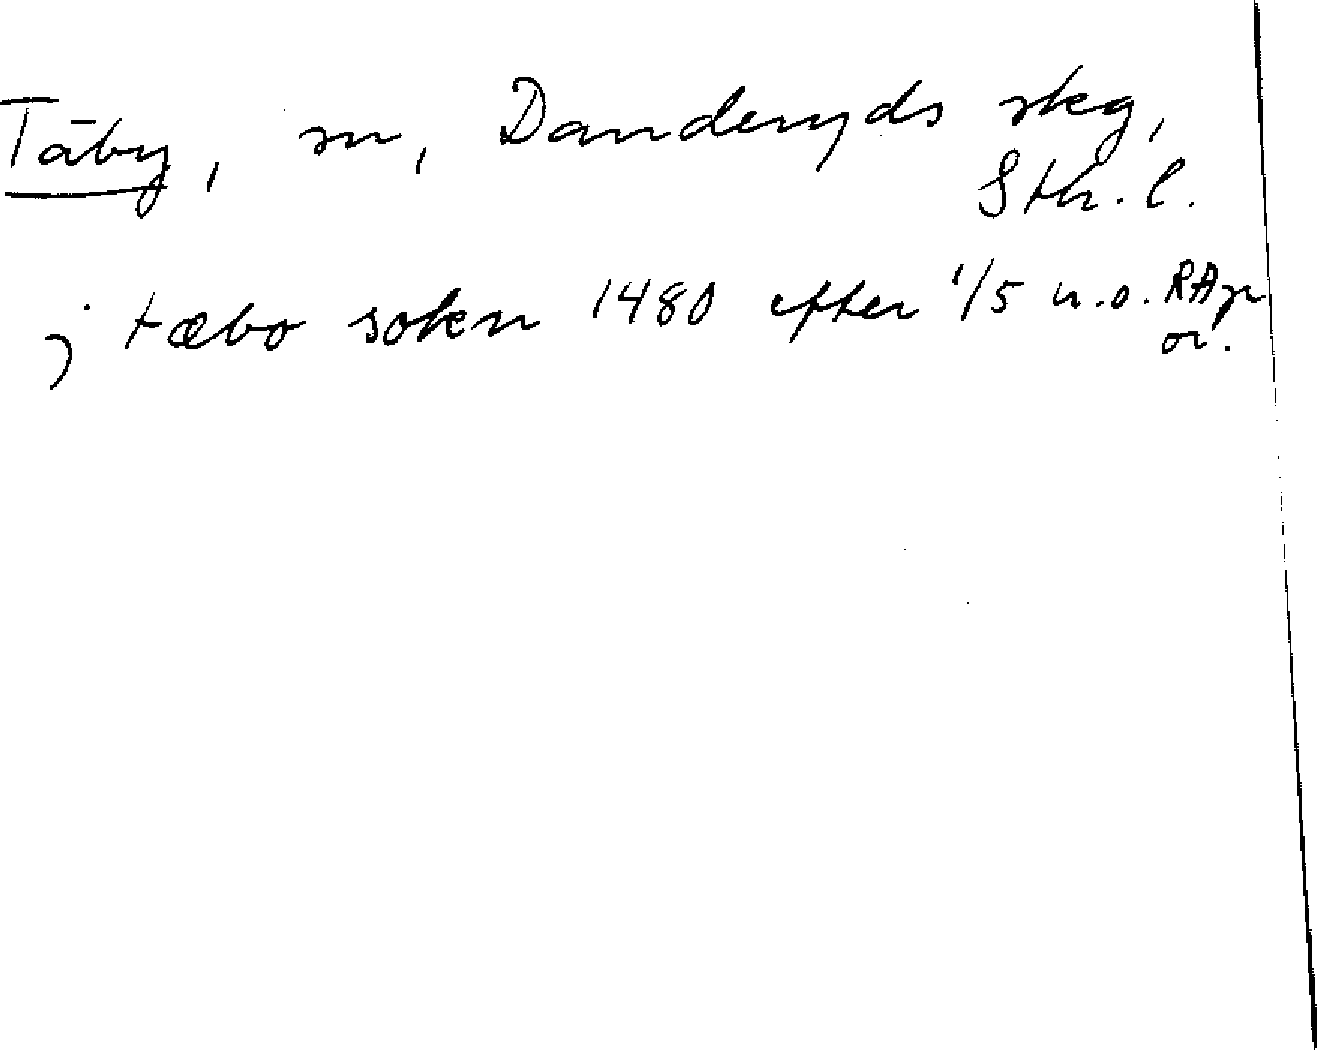 Täby, sn, Danderyds skg,
Sth. l.
j tæbo sokn 1480 efter 1/5 u.o. RAp
or.